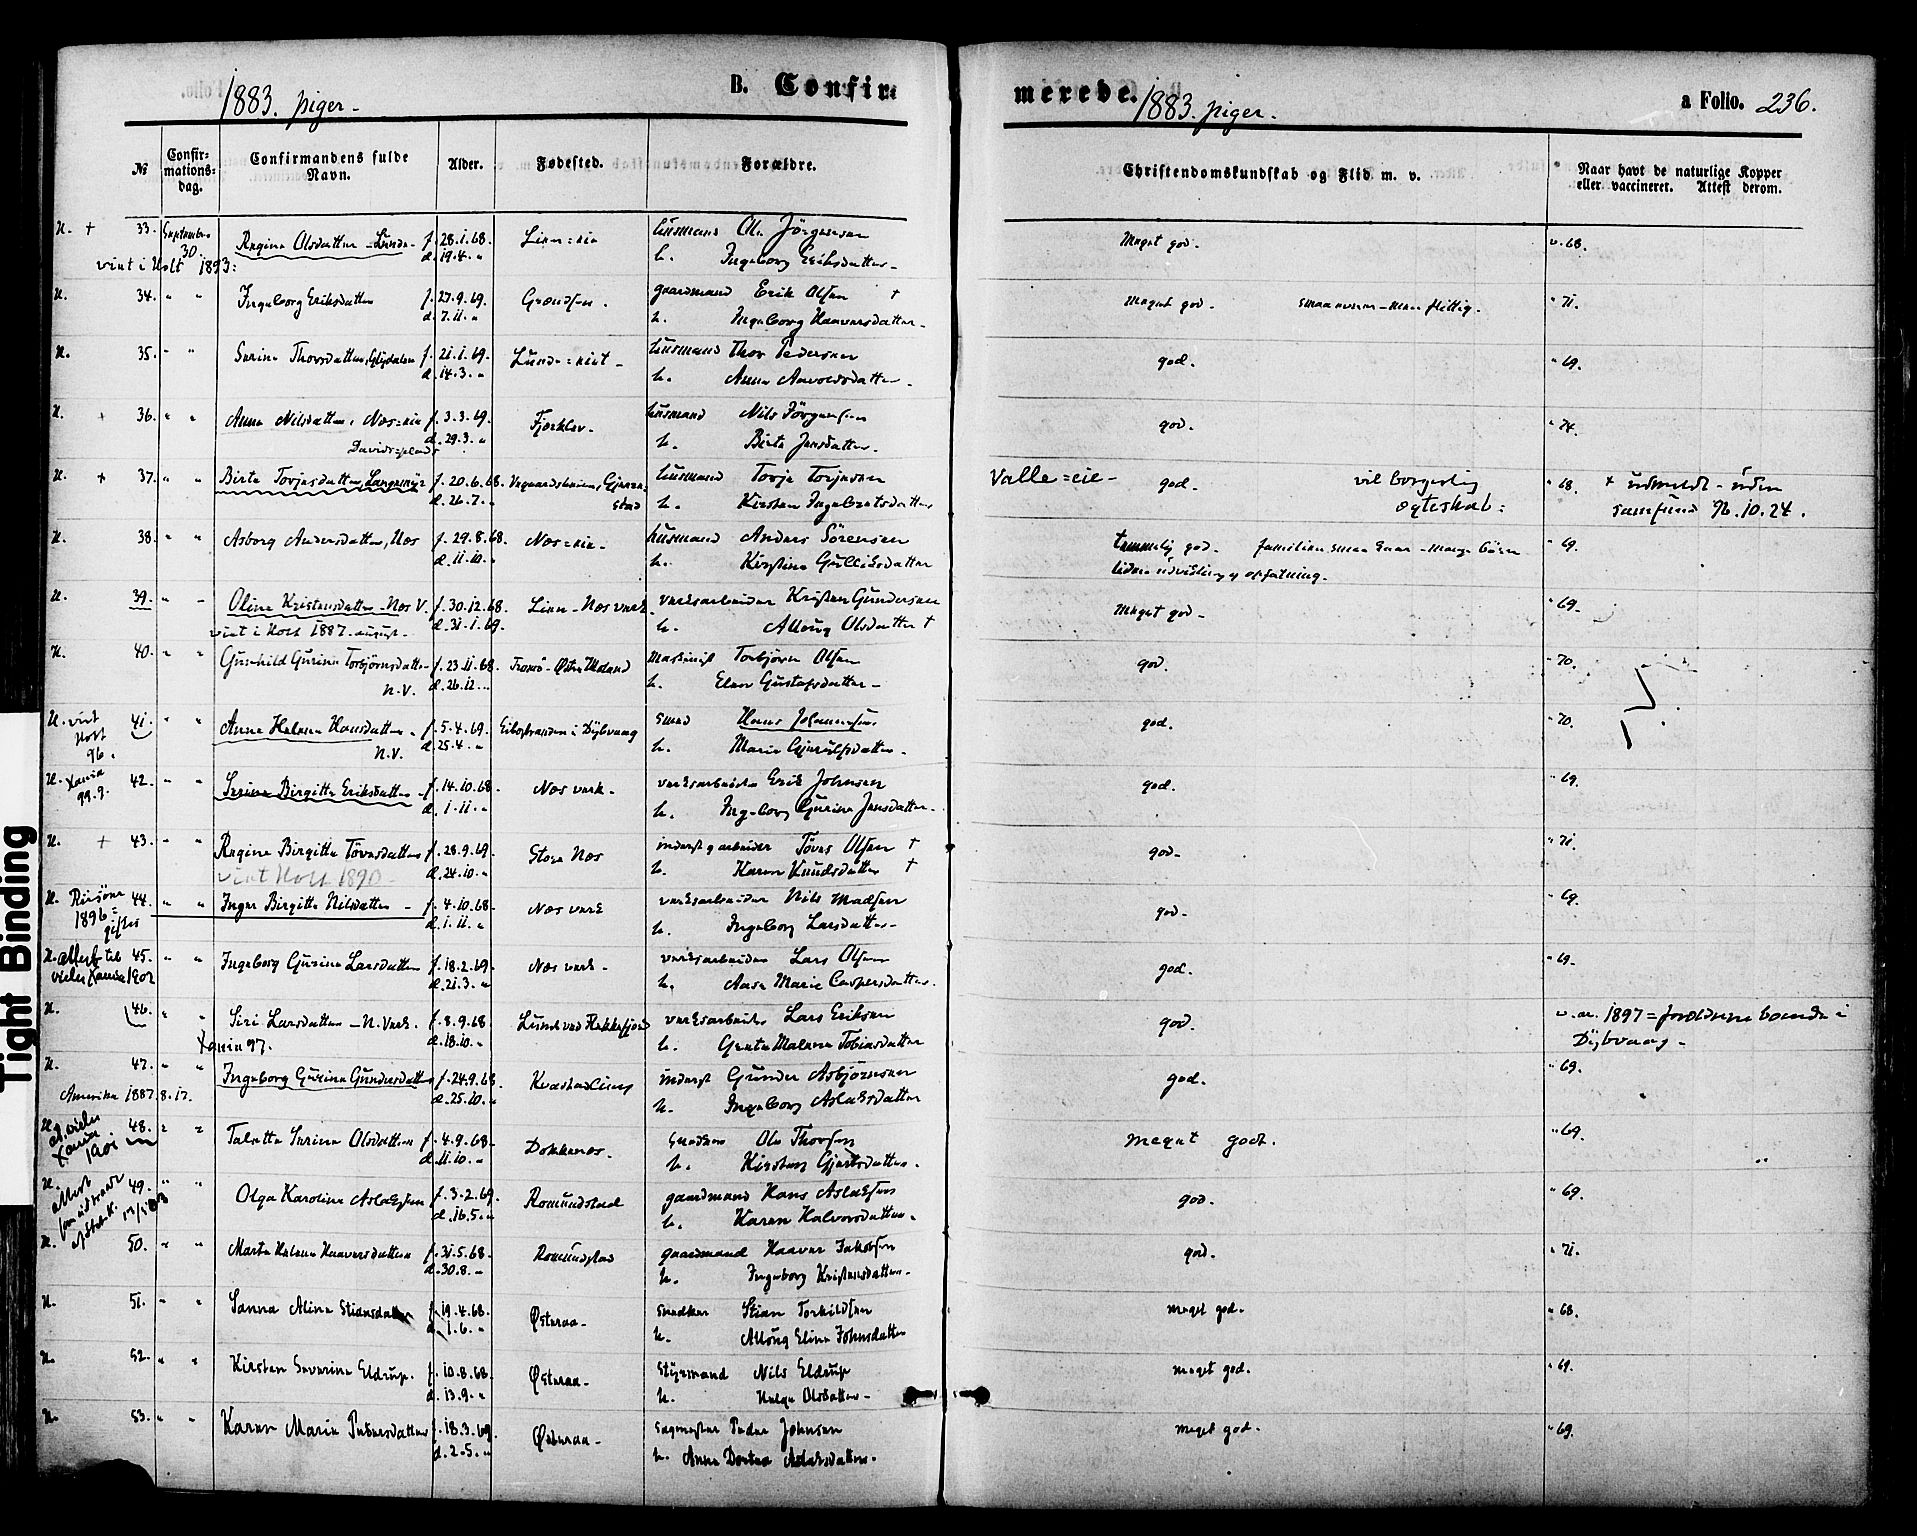 1883. piger.
B. Confir-
merede.
1883. piger.
a Folio. 236.
№
Confir-
mations-
dag.
Confirmandens fulde
Navn.
Alder.
Fødested.
Forældre.
Christendomskundskab og Flid m. v.
Naar havt de naturlige Kopper
eller vaccineret. Attest derom.
U. + 33. September 30 Regine Olsdatter f. 28.1.68. husmand Ole Jörgensen Meget god. v. 68.
viet i Holt 1893: d. 19.4. „ h. Ingeborg Eriksdatter
U. 34. „ „ Ingeborg Eriksdatter f. 27.9.69. gaardmand Erik Olsen + Meget god. flittig. „ 71.
d. 7.11. „ h. Ingeborg Haaversdatter
U. 35. „ „ Serine Thorsdatter, f. 21.1.69. Lunde=eiet husmand Thor Pedersen god. „ 69.
d. 14.3. „ h. Anna
U. + 36. „ „ Anna Nilsdatter, Næs=eie f. 3.3.69. Fjærklev. husmand Nils Jörgensen god. „ 74.
Davidsplads d. 29.3. „ h. Birte Jensdatter.
U. + 37. „ „ Birte Torjesdatter, Langemyr f. 20.6.68. husmand Torje Torjesen Valle=eie god. vil borgerlig „ 68. + udmeldt - uden
d. 26.7. „ h. Kirsten Ingebretsdatter egteskab: samfund 96.10.24.
U. 38. „ „ Asborg Andersdatter, Næs f. 29.8.68. Næs=eie. husmand Anders Sörensen temmelig god. „ 69.
d. 11.10. „ h. Kirstine Gullisdatter
U. 39. „ „ Oline Kristensdatter - Næs V. f. 30.12.68. Lien - Næs verk verksarbeider Kristen Gundersen Meget god. „ 69.
viet i Holt 1887. august. d. 31.1.69. h. Alloug Olsdatter +
U. 40. „ „ Gunhild Gurine Torbjörnsdatter f. 23.11.68. Østre Moland Maskinist Torbjörn Olsen god. „ 70.
N.V. d. 26.12. „ h. Elen Gustafsdatter
U. viet 41. „ „ Anne Helene Hansdatter f. 5.4.69. i Dybvaag smed Hans Johannesen god. „ 70.
Holt 96. N.V. d. 25.4. „ h. Marie
U. Xania 42. „ „ Serine Birgitte Eriksdatter f. 14.10.68. Næs verk. verksarbeider Erik Johnsen god. „ 69.
99.9. d. 1.11. „ h. Ingeborg Gurine Jensdatter.
U. + 43. „ „ Regine Birgitte Tövesdatter f. 28.9.69. Næs inderst og arbeider Töves Olsen + god. „ 71.
viet Holt 1890 d. 24.10. „ h. Karen Knudsdatter +
U. Risöer 44. „ „ Inger Birgitte Nilsdatter f. 4.10.68. Næs verk verksarbeider Nils Madsen god. „ 69.
1896= giftes d. 1.11. „ h. Ingeborg Larsdatter
U. attest til 45. „ „ Ingeborg Gurine Larsdatter f. 18.2.69. Næs verk. verksarbeider Lars Olsen god. „ 69.
vielse Xania 1902 d. 21.3. „ h. Aase Marie Caspersdatter.
U. 46. „ „ Siri Larsdatter - N. Verk. f. 8.9.68. Lunde ved Flekkefjord verksarbeider Lars Eriksen god. v. at. 1897 = forældrene boende i
Xania 97. d. 18.10. „ h. Grete Malene Tobiasdatter Dybvaag -
U. 47. „ „ Ingeborg Gurine Gundersdatter f. 24.9.68. inderst Gunder Asbjörnsen god. „ 69.
Amerika 1887.8.17. d. 25.10. „ h. Ingeborg Aslaksdatter
U. at. vielse 48. „ „ Talette Serine Olsdatter f. 4.9.68. Dokkenæs. Ole Thorsen Meget godt. „ 69.
Xania 1901 d. 11.10. „ h. Kirsten
U. attest 49. „ „ Olga Karoline Aslaksen f. 3.2.69. Romundstad gaardmand Hans Aslaksen god. „ 69.
d. 16.5. „ h. Karen Halvorsdatter.
U. 50. „ „ Marte Helene Haaversdatter f. 31.5.68. Romundstad gaardmand Haaver Jakobsen god. „ 71.
d. 30.8. „ h. Ingeborg Kristensdatter.
U. 51. „ „ Sanna Aline Stiansdatter f. 19.4.68. Østeraa. snedker Stian Torkildsen meget god. „ 68.
d. 1.6. „ h. Alloug Eline Johnsdatter
U. 52. „ „ Kirsten Severine Eldrup. f. 10.8.68. Østeraa. styrmand Nils Eldrup meget god. „ 69.
d. 13.9. „ h. Helga Olsdatter
U. 53. „ „ Karen Marie Pedersdatter f. 18.3.69. Østeraa. sagmester Peder Johnsen meget god. „ 69.
d. 2.5. „ h. Anne Dortea Aslaksdatter.
Tight Binding